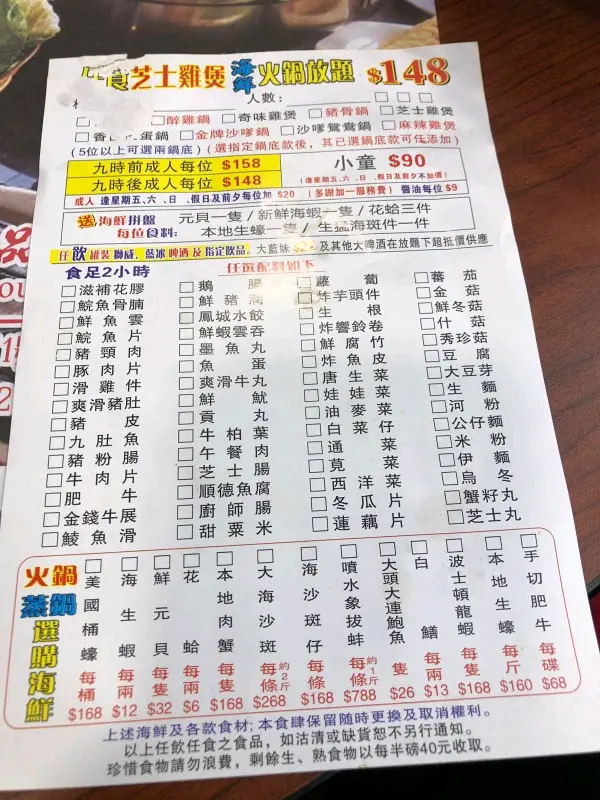 食芝士雞煲海鮮火鍋放題 $148
人數：□ □ □
□ □醉雞鍋 □奇味雞煲 □豬骨鍋 □芝士雞煲
□香 蛋鍋 □金牌沙嗲鍋 □沙嗲鴛鴦鍋 □麻辣雞煲
(5位以上可選兩鍋底) (選指定鍋底款後，其已選鍋底款可任添加)
九時前成人每位 $158
九時後成人每位 $148
小童 $90
(逢星期五、六、日、假日及前夕不加價)
成人 逢星期五、六、日、假日及前夕每位加 $20 (多謝加一服務費) 醬油每位 $9
送海鮮拼盤 元貝一隻/新鮮海蝦一隻/花蛤三件
每位食料： 本地生蠔一隻/生猛海斑件一件
任飲罐裝獅威、藍冰啤酒及指定飲品。大藍妹 及其他大啤酒在放題下超抵價供應
食足2小時 任選配料如下
□滋補花膠 □鵝腸 □蘿蔔 □蕃茄
□鯇魚骨腩 □鮮豬潤 □炸芋頭件 □金菇
□鮮魚雲 □鳳城水餃 □生根 □鮮冬菇
□鯇魚片 □鮮蝦雲吞 □炸響鈴卷 □什菇
□豬頸肉 □墨魚丸 □鮮腐竹 □秀珍菇
□豚肉片 □魚蛋 □炸魚皮 □豆腐
□滑雞件 □爽滑牛丸 □唐生菜 □大豆芽
□爽滑豬肚 □鮮魷 □娃娃菜 □生麵
□豬皮 □貢丸 □油麥菜 □河粉
□九肚魚 □牛柏葉 □白菜仔 □公仔麵
□豬粉腸 □午餐肉 □通菜 □米粉
□牛肉片 □芝士腸 □莧菜 □伊麵
□肥牛 □順德魚腐 □西洋菜 □烏冬
□金錢牛展 □廚師腸 □冬瓜片 □蟹籽丸
□鯪魚滑 □甜粟米 □蓮藕片 □芝士丸
火鍋蒸鍋選購海鮮
□美國桶蠔 每桶 $168
□海生蝦 每兩 $12
□鮮元貝 每隻 $32
□花蛤 每隻 $6
□本地肉蟹 每隻 $168
□大海沙斑 每條約2斤 $268
□海沙斑仔 每條 $168
□噴水象拔蚌 每條約1斤 $788
□大頭大連鮑魚 隻 $26
□白鱔 每兩 $13
□波士頓龍蝦 每隻 $168
□本地生蠔 每斤 $160
□手切肥牛 每碟 $68
上述海鮮及各款食材；本食肆保留隨時更換及取消權利。
以上任飲任食之食品，如沽清或缺貨恕不另行通知。
珍惜食物請勿浪費，剩餘生、熟食物以每半磅40元收取。